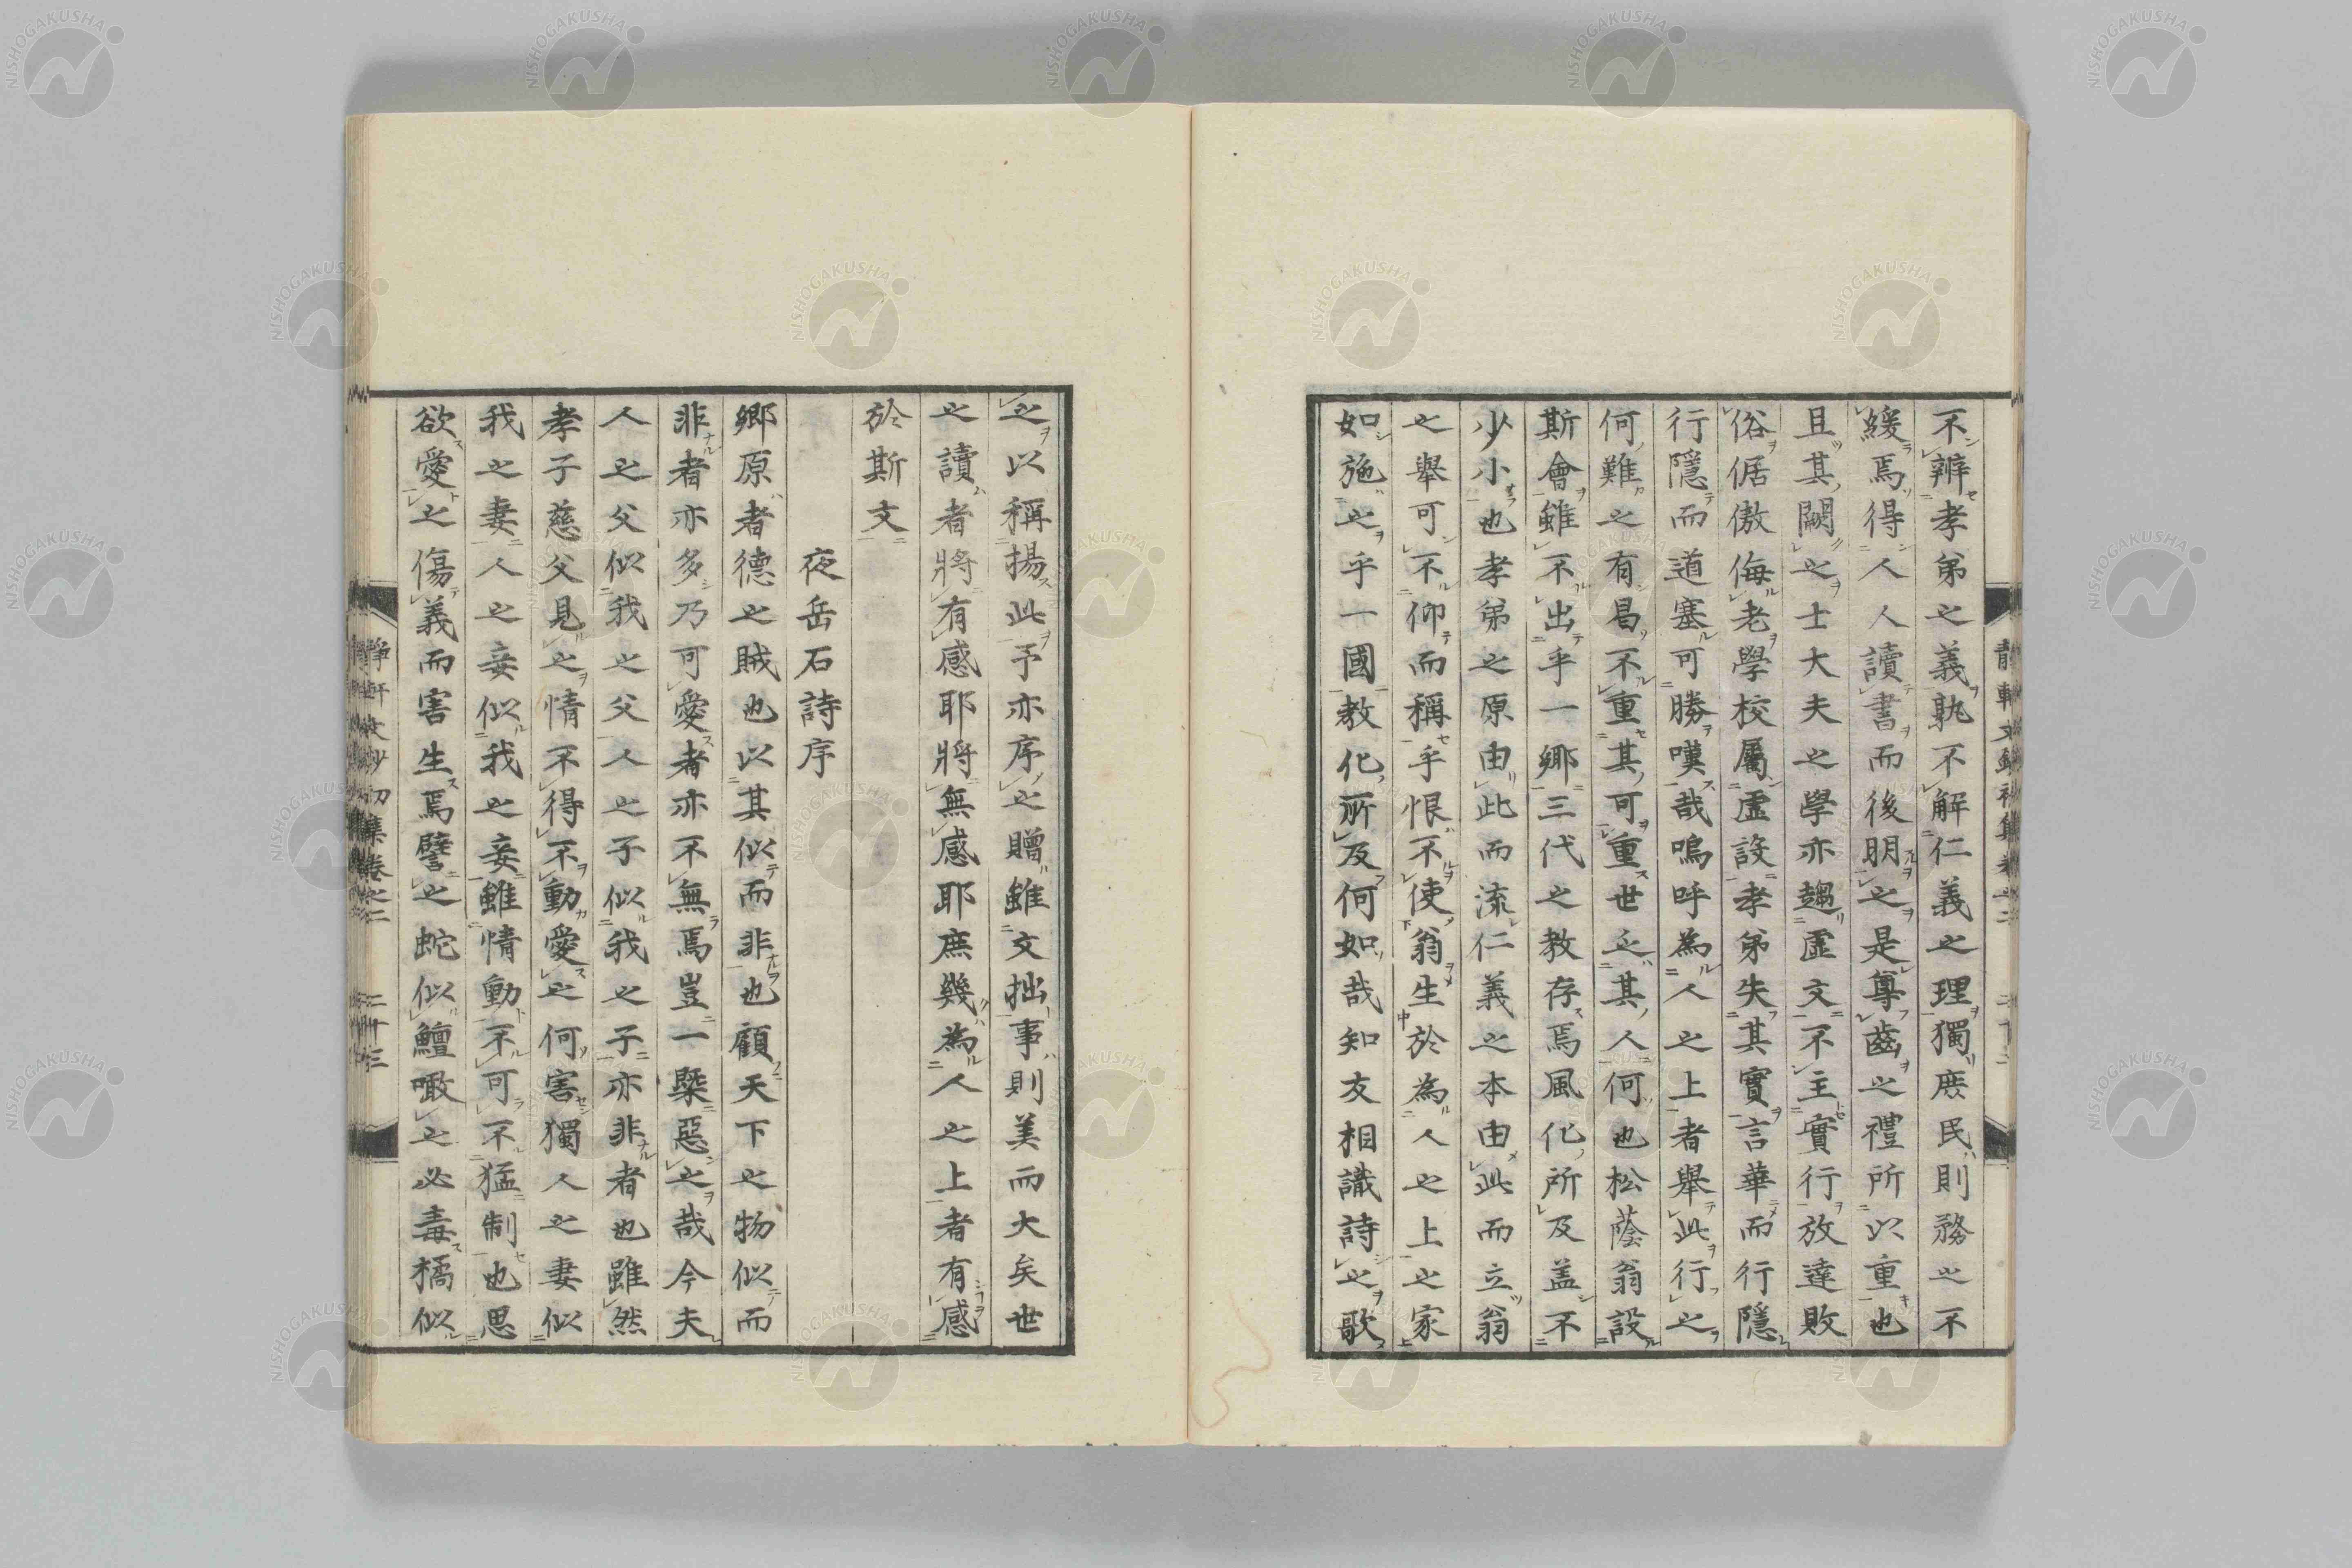 不辨孝弟之義孰不解仁義之理獨庶民則務之不
緩焉得人人讀書而後明之是尊齒之禮所以重也
且其闕之士大夫之學亦趨虛文不主實行放達敗
俗倨傲侮老學校屬虛設孝弟失其實言華而行隱
行隱而道塞可勝嘆哉嗚呼為人之上者舉此行之
何難之有曷不重其可重世之其人何也松蔭翁設
斯會雖不出乎一鄉三代之教存焉風化所及盖不
少小也孝弟之原由此而流仁義之本由此而立翁
之舉可不仰而稱乎恨不使翁生於為人之上之家
如施之乎一國教化所及何如哉知友相識詩之歌
之以稱揚此予亦序之贈雖文拙事則美而大矣世
之讀者將有感耶將無感耶庶幾為人之上者有感
於斯文
夜岳石詩序
鄉原者德之賊也以其似而非也顧天下之物似而
非者亦多乃可愛者亦不無焉豈一槩惡之哉今夫
人之父似我之父人之子似我之子亦非者也雖然
孝子慈父見之情不得不動愛之何害獨人之妻似
我之妻人之妾似我之妾雖情動不可不猛制也思
欲愛之傷義而害生焉譬之蛇似鱣噉之必毒橘似
靜軒文鈔初集卷之二 二十三